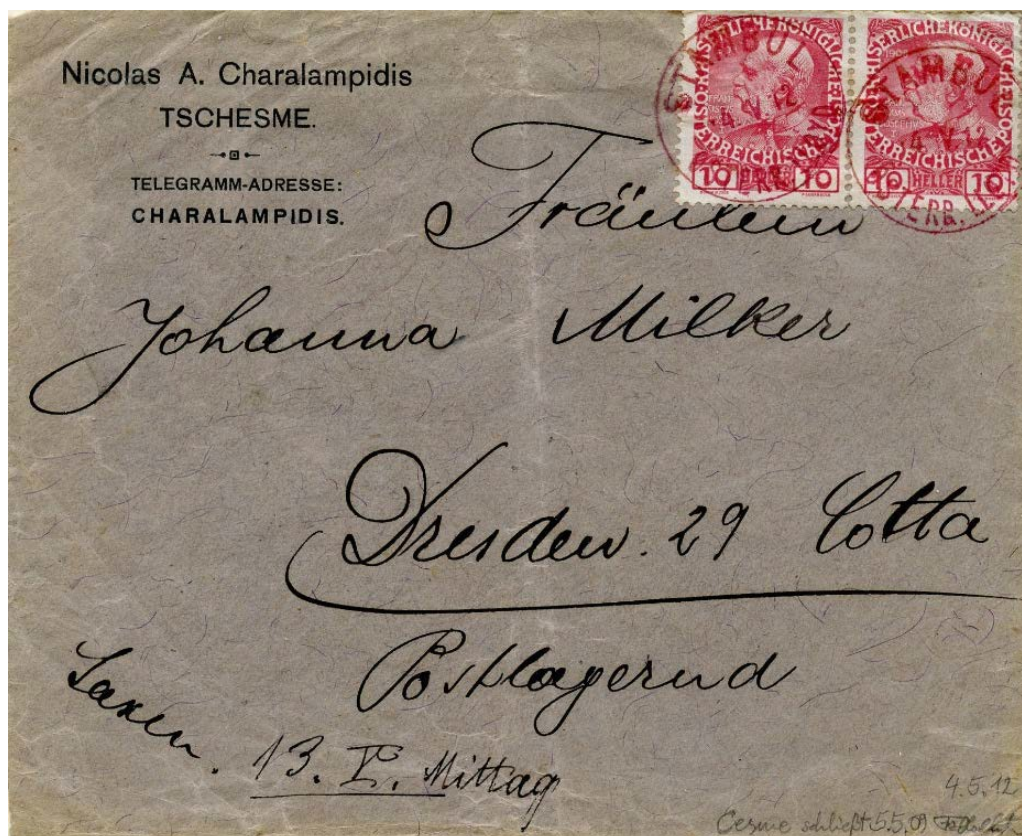 Nicolas A. Charalampidis
TSCHESME.
TELEGRAMM-ADRESSE:
CHARALAMPIDIS.
STAMBUL
4 V 12
10 10
STAMBU
4 V 12
10 HELLER 10
Fräulein
Johanna Milker
Dresden. 29 Cotta
Postlagernd
Saxen.
13. V. Mittag
4.5.12
Cesme schließt 5.5.09